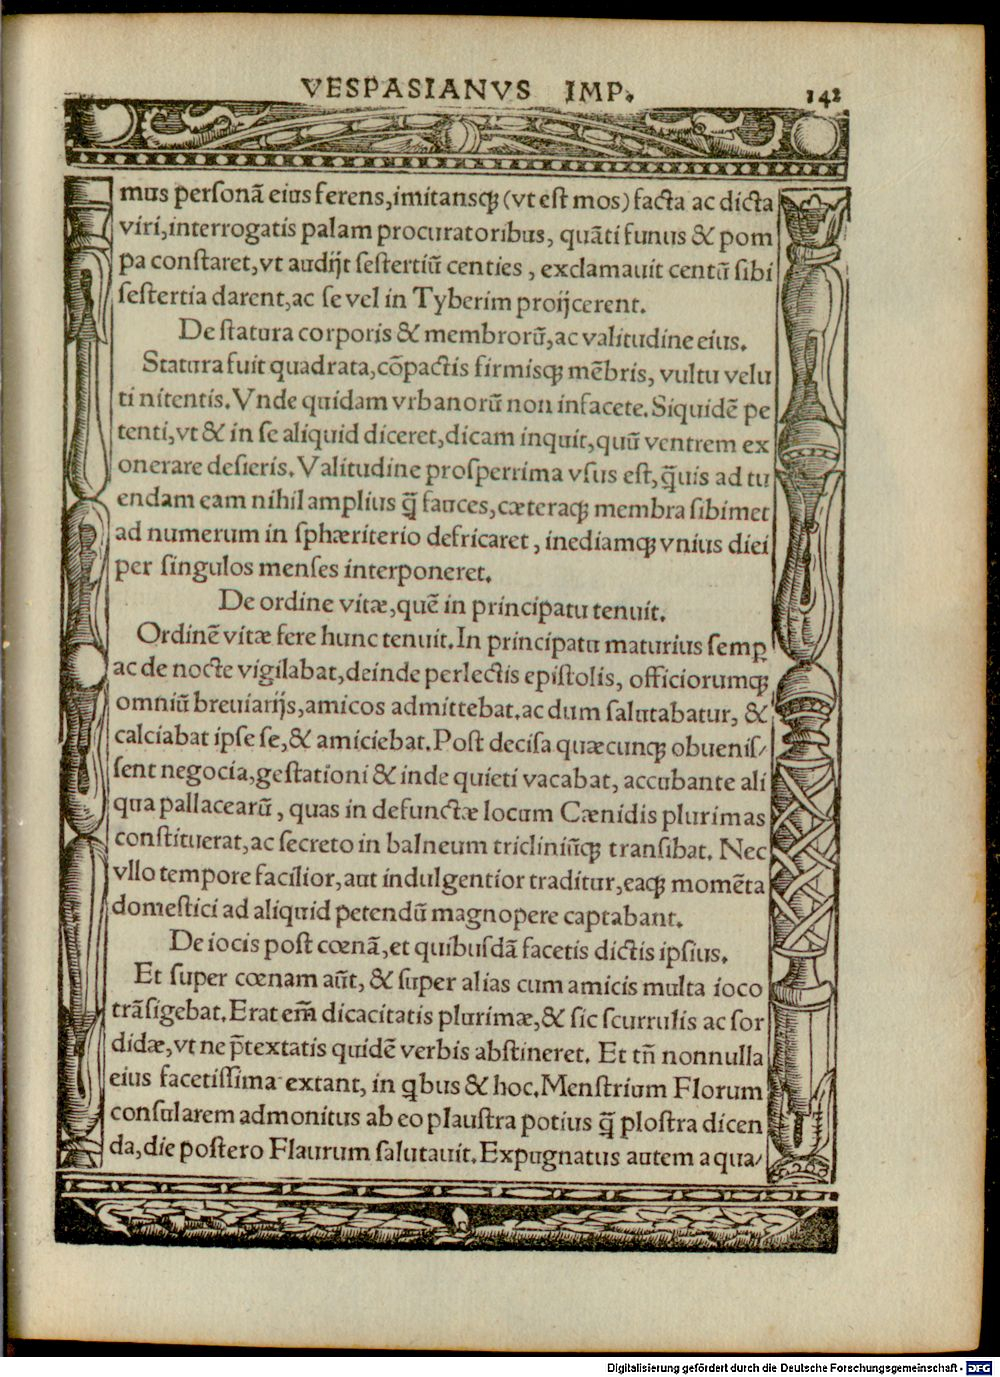 VESPASIANVS IMP.
142
mus personā eius ferens,imitansq́ꝫ (vt est mos) facta ac dicta
viri,interrogatis palam procuratoribus, quāti funus & pom
pa constaret,vt audijt sestertiū centies , exclamauit centū sibi
sestertia darent,ac se vel in Tyberim proijcerent.
De statura corporis & membrorū,ac valitudine eius.
Statura fuit quadrata,cōpactis firmisq́ꝫ mēbris, vultu velu
ti nitentis.Vnde quidam vrbanorū non infacete.Siquidē pe
tenti,vt & in se aliquid diceret,dicam inquit,quū ventrem ex
onerare desieris.Valitudine prosperrima vsus est,q̄uis ad tu
endam eam nihil amplius q̄ fauces,cæteraq́ꝫ membra sibimet
ad numerum in sphæriterio defricaret , inediamq́ꝫ vnius diei
per singulos menses interponeret.
De ordine vitæ,quē in principatu tenuit.
Ordinē vitæ fere hunc tenuit.In principatu maturius semꝑ
ac de nocte vigilabat,deinde perlectis epistolis, officiorumq́ꝫ
omniū breuiarijs,amicos admittebat.ac dum salutabatur, &
calciabat ipse se,& amiciebat.Post decisa quæcunq́ꝫ obuenis/
sent negocia,gestationi & inde quieti vacabat, accubante ali
qua pallacearū , quas in defunctæ locum Cænidis plurimas
constituerat,ac secreto in balneum tricliniūq́ꝫ transibat. Nec
vllo tempore facilior,aut indulgentior traditur,eaq́ꝫ momēta
domestici ad aliquid petendū magnopere captabant.
De iocis post cœnā,et quibusdā facetis dictis ipsius.
Et super cœnam aūt, & super alias cum amicis multa ioco
trāsigebat.Erat em̄ dicacitatis plurimæ,& sic scurrulis ac sor
didæ,vt ne p̄textatis quidē verbis abstineret. Et tn̄ nonnulla
eius facetissima extant, in qbus & hoc.Menstrium Florum
consularem admonitus ab eo plaustra potius q̄ plostra dicen
da,die postero Flaurum salutauit.Expugnatus autem a qua/
Digitalisierung gefördert durch die Deutsche Forschungsgemeinschaft - DFG